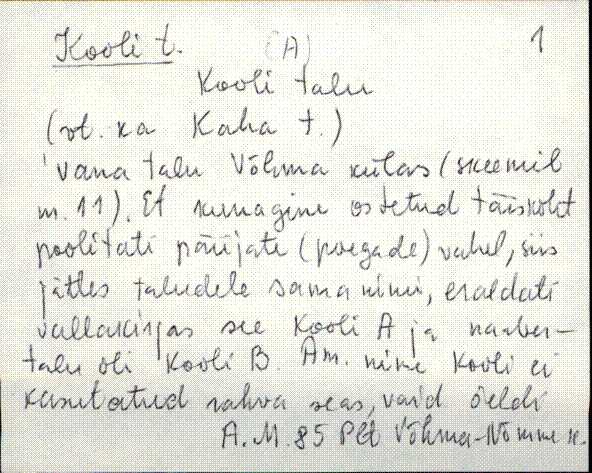 Kooli t. (A) 1
Kooli talu
(vt. ka Kaha t.)
'vana talu Võhma külas (skeemil
m. 11). Et kunagine ostetud täiskoht
poolitati pärijate (poegade) vahel, siis
jättes taludele sama nimi, eraldati
vallakirjas see Kooli A ja naaber-
talu oli Kooli B. Am. nime Kooli ei
kasutatud rahva seas, vaid öeldi
A.M. 85 Plt Võhma-Nõmme k.